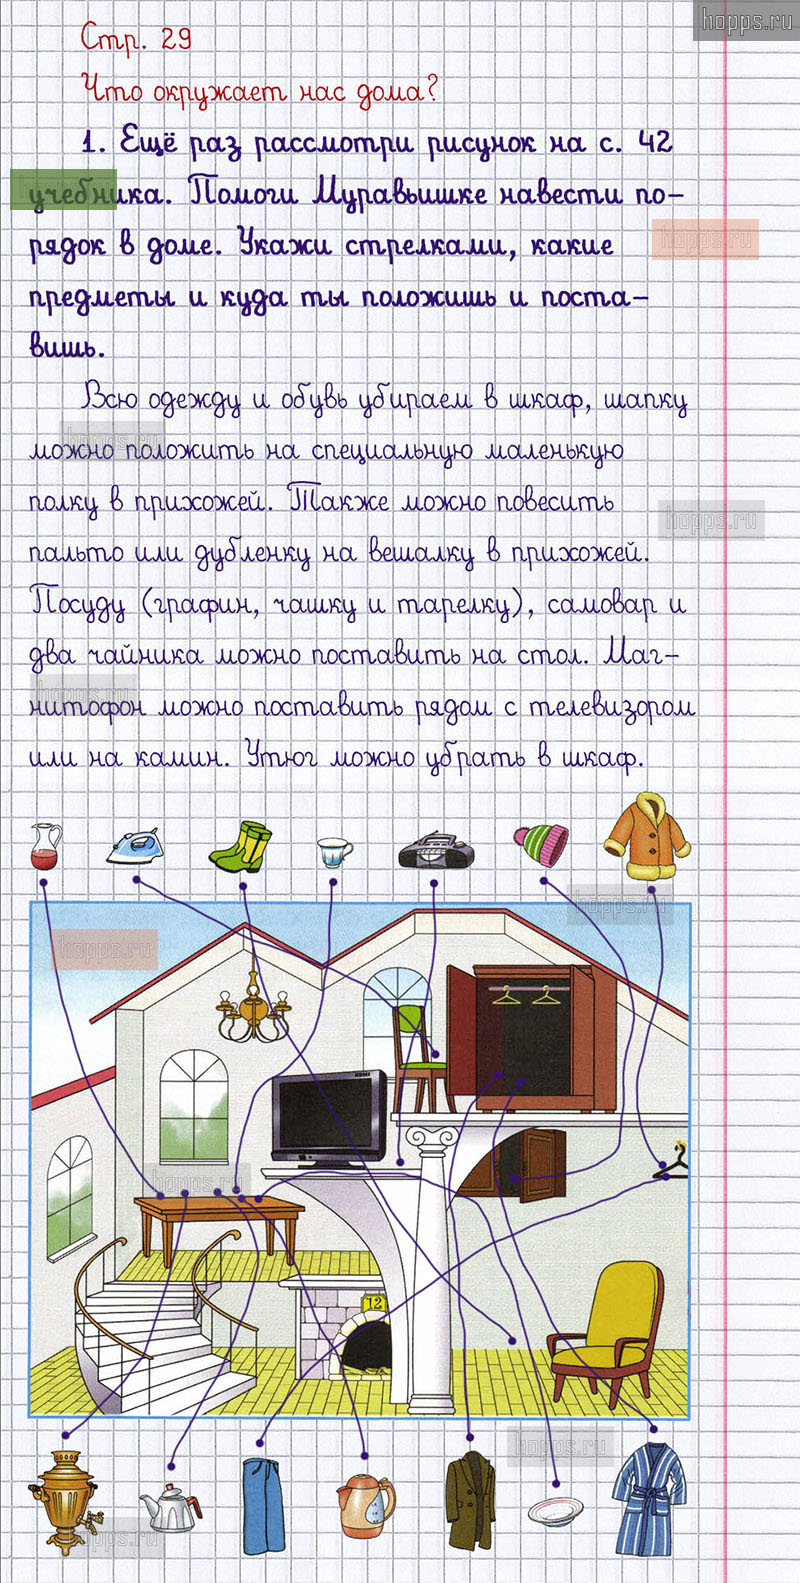 hopps.ru
Стр. 29
Что окружает нас дома?
1. Ещё раз рассмотри рисунок на с. 42
учебника. Помоги Муравьишке навести по-
рядок в доме. Укажи стрелками, какие
hopps.ru
предметы и куда ты положишь и поста-
вишь.
Всю одежду и обувь убираем в шкаф, шапку
hopps.ru
можно положить на специальную маленькую
полку в прихожей. Также можно повесить
hopps.ru
пальто или дубленку на вешалку в прихожей.
Посуду (графин, чашку и тарелку), самовар и
два чайника можно поставить на стол. Маг-
hopps.ru
нитофон можно поставить рядом с телевизором
или на камин. Утюг можно убрать в шкаф.
hopps.ru
hopps.ru
hopps.ru
12
hopps.ru
hopps.ru